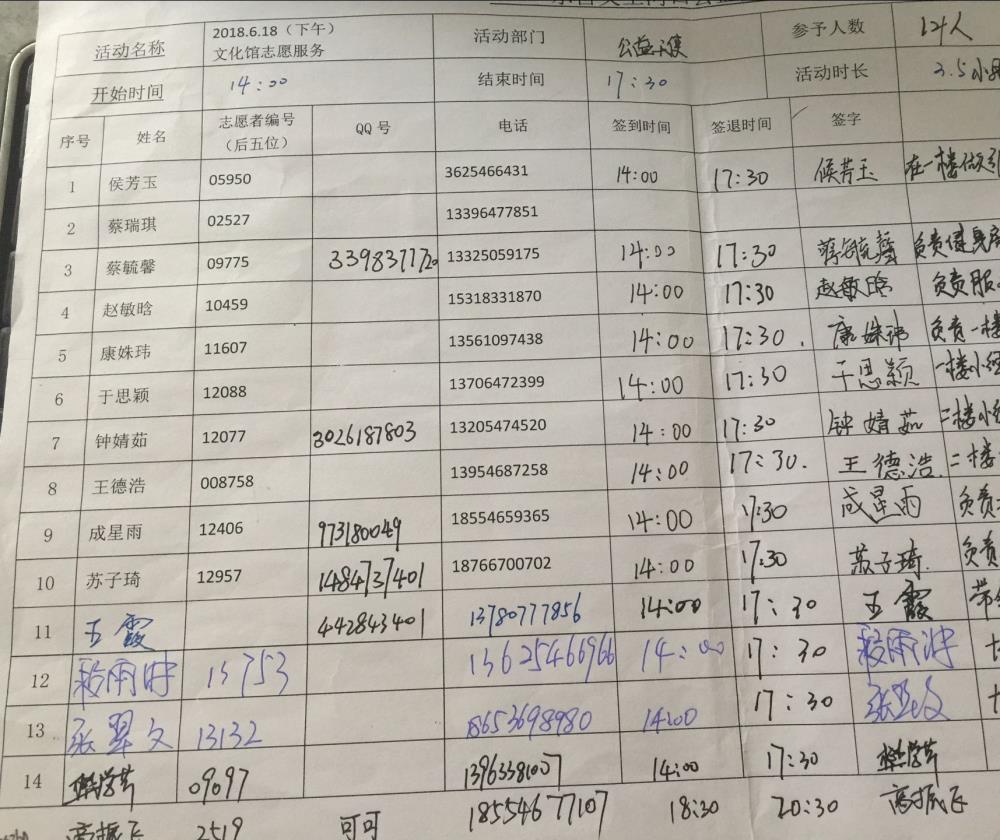 活动名称 2018.6.18（下午） 文化馆志愿服务 活动部门 公益天使 参予人数 14人
开始时间 14:00 结束时间 17:30 活动时长 3.5小
序号 姓名 志愿者编号（后五位） QQ 号 电话 签到时间 签退时间 签字
1 侯芳玉 05950 3625466431 14:00 17:30 侯芳玉 在一楼做引
2 蔡瑞琪 02527 13396477851
3 蔡毓馨 09775 3398377720 13325059175 14:00 17:30 蔡毓馨 负责健身房
4 赵敏晗 10459 15318331870 14:00 17:30 赵敏晗 负责服
5 康姝玮 11607 13561097438 14:00 17:30. 康姝玮 负责一楼
6 于思颖 12088 13706472399 14:00 17:30 于思颖 一楼小
7 钟婧茹 12077 3026187803 13205474520 14:00 17:30 钟婧茹 二楼小
8 王德浩 008758 13954687258 14:00 17:30. 王德浩. 二楼
9 成星雨 12406 973180049 18554659365 14:00 17:30 成星雨 负责
10 苏子琦 12957 1484737401 18766700702 14:00 17:30 苏子琦. 负责
11 王霞 442843401 13780777856 14:00 17:30 王霞 带
12 13753 13625466966 14:00 17:30
13 张翠文 13132 18653698980 14:00 17:30
14 09697 13963381007 14:00 17:30
高振飞 2519 可可 18554677107 18:30 20:30 高振飞